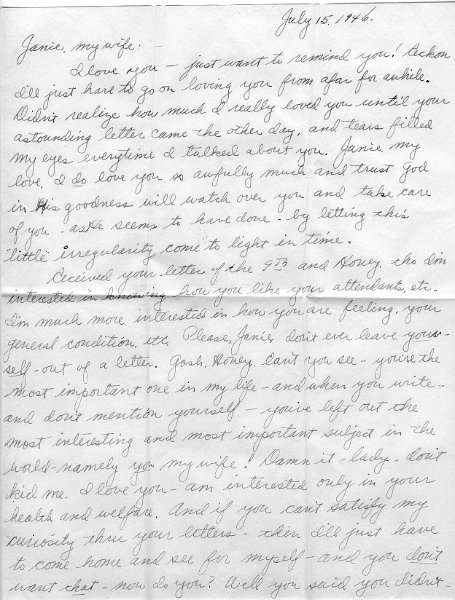 July 15, 1946.
Janie, my wife: -
I love you - just want to remind you! Reckon
I'll just have to go on loving you from afar for awhile.
Didn't realize how much I really loved you until your
astounding letter came the other day, and tears filled
my eyes everytime I talked about you. Janie my
love, I do love you so awfully much and trust God
in His goodness will watch over you and take care
of you - as He seems to have done - by letting this
"little" irregularity come to light in time.
Received your letter of the 9th and Honey, tho I'm
interested in knowing how you like your attendants, etc.
I'm much more interested in how you are feeling, your
general condition, etc. Please, Janie, don't ever leave your-
self - out of a letter. Gosh, Honey, can't you see - you're the
most important one in my life - and when you write -
and don't mention yourself - you've left out the
most interesting and most important subject in the
world - namely you - my wife! Damn it - lady - don't
kid me. I love you - am interested only in your
health and welfare. And if you can't satisfy my
curiosity thru your letters - then I'll just have
to come home and see for myself - and you don't
want that - now do you? Well you said you didn't -